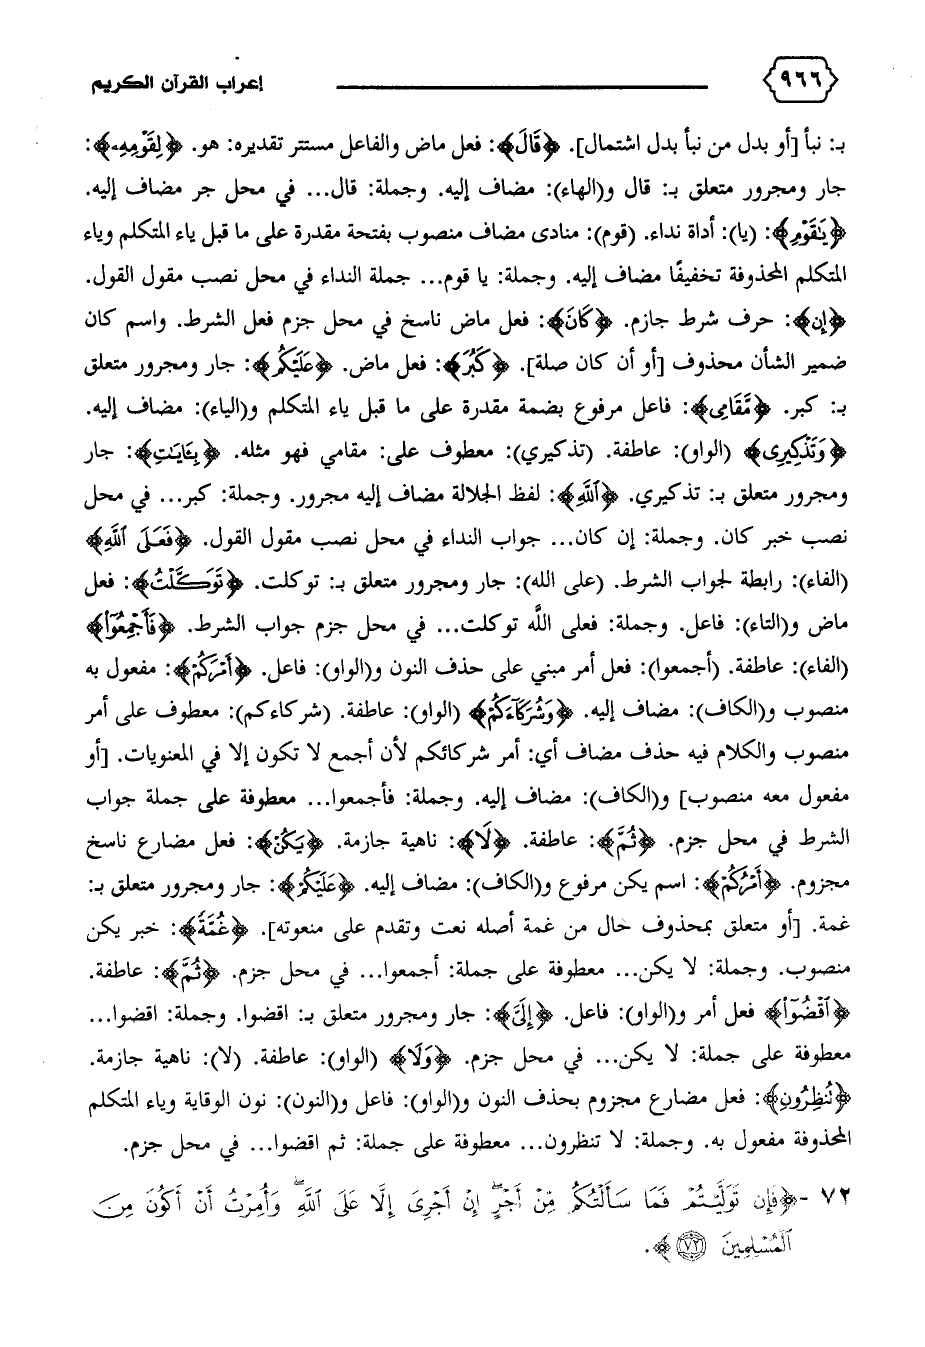 ٩٦٦ إعراب القرآن الكريم
بـ: نبأ [أو بدل من نبأ بدل اشتمال]. ﴿قَالَ﴾: فعل ماض والفاعل مستتر تقديره: هو. ﴿لِقَوْمِهِۦ﴾:
جار ومجرور متعلق بـ: قال و(الهاء): مضاف إليه. وجملة: قال... في محل جر مضاف إليه.
﴿يَٰقَوْمِ﴾: (يا): أداة نداء. (قوم): منادى مضاف منصوب بفتحة مقدرة على ما قبل ياء المتكلم وياء
المتكلم المحذوفة تخفيفًا مضاف إليه. وجملة: يا قوم... جملة النداء في محل نصب مقول القول.
﴿إِن﴾: حرف شرط جازم. ﴿كَانَ﴾: فعل ماض ناسخ في محل جزم فعل الشرط. واسم كان
ضمير الشأن محذوف [أو أن كان صلة]. ﴿كَبُرَ﴾: فعل ماض. ﴿عَلَيْكُم﴾: جار ومجرور متعلق
بـ: كبر. ﴿مَّقَامِى﴾: فاعل مرفوع بضمة مقدرة على ما قبل ياء المتكلم و(الياء): مضاف إليه.
﴿وَتَذْكِيرِى﴾ (الواو): عاطفة. (تذكيري): معطوف على: مقامي فهو مثله. ﴿بِـَٔايَٰتِ﴾: جار
ومجرور متعلق بـ: تذكيري. ﴿ٱللَّهِ﴾: لفظ الجلالة مضاف إليه مجرور. وجملة: كبر... في محل
نصب خبر كان. وجملة: إن كان... جواب النداء في محل نصب مقول القول. ﴿فَعَلَى ٱللَّهِ﴾
(الفاء): رابطة لجواب الشرط. (على الله): جار ومجرور متعلق بـ: توكلت. ﴿تَوَكَّلْتُ﴾: فعل
ماض و(التاء): فاعل. وجملة: فعلى اللَّه توكلت... في محل جزم جواب الشرط. ﴿فَأَجْمِعُوٓا۟﴾
(الفاء): عاطفة. (أجمعوا): فعل أمر مبني على حذف النون و(الواو): فاعل. ﴿أَمْرَكُمْ﴾: مفعول به
منصوب و(الكاف): مضاف إليه. ﴿وَشُرَكَآءَكُمْ﴾ (الواو): عاطفة. (شركاءكم): معطوف على أمر
منصوب والكلام فيه حذف مضاف أي: أمر شركائكم لأن أجمع لا تكون إلا في المعنويات. [أو
مفعول معه منصوب] و(الكاف): مضاف إليه. وجملة: فأجمعوا... معطوفة على جملة جواب
الشرط في محل جزم. ﴿ثُمَّ﴾: عاطفة. ﴿لَا﴾: ناهية جازمة. ﴿يَكُنْ﴾: فعل مضارع ناسخ
مجزوم. ﴿أَمْرُكُمْ﴾: اسم يكن مرفوع و(الكاف): مضاف إليه. ﴿عَلَيْكُمْ﴾: جار ومجرور متعلق بـ:
غمة. [أو متعلق بمحذوف حال من غمة أصله نعت وتقدم على منعوته]. ﴿غُمَّةً﴾: خبر يكن
منصوب. وجملة: لا يكن... معطوفة على جملة: أجمعوا... في محل جزم. ﴿ثُمَّ﴾: عاطفة.
﴿ٱقْضُوٓا۟﴾ فعل أمر و(الواو): فاعل. ﴿إِلَىَّ﴾: جار ومجرور متعلق بـ: اقضوا. وجملة: اقضوا...
معطوفة على جملة: لا يكن... في محل جزم. ﴿وَلَا﴾ (الواو): عاطفة. (لا): ناهية جازمة.
﴿تُنظِرُونِ﴾: فعل مضارع مجزوم بحذف النون و(الواو): فاعل و(النون): نون الوقاية وياء المتكلم
المحذوفة مفعول به. وجملة: لا تنظرون... معطوفة على جملة: ثم اقضوا... في محل جزم.
٧٢ - ﴿فَإِن تَوَلَّيْتُمْ فَمَا سَأَلْتُكُم مِّنْ أَجْرٍ ۖ إِنْ أَجْرِىَ إِلَّا عَلَى ٱللَّهِ ۖ وَأُمِرْتُ أَنْ أَكُونَ مِنَ
ٱلْمُسْلِمِينَ ٧٢﴾.